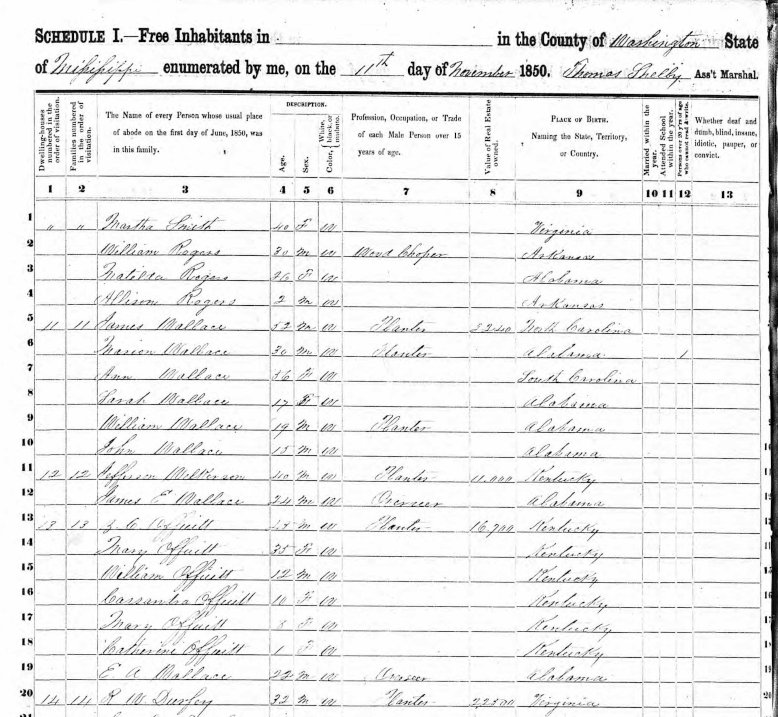 SCHEDULE I.—Free Inhabitants in in the County of Washington State
of Mississippi enumerated by me, on the 11th day of November 1850. Thomas Shelby Ass't Marshal.
Dwelling-houses numbered in the order of visitation.
Families numbered in the order of visitation.
The Name of every Person whose usual place of abode on the first day of June, 1850, was in this family.
DESCRIPTION.
Age.
Sex.
Color, White, black or mulatto.
Profession, Occupation, or Trade of each Male Person over 15 years of age.
Value of Real Estate owned.
PLACE OF BIRTH. Naming the State, Territory, or Country.
Married within the year.
Attended School within the year.
Persons over 20 y'rs of age who cannot read & write.
Whether deaf and dumb, blind, insane, idiotic, pauper, or convict.
1 2 3 4 5 6 7 8 9 10 11 12 13
1 " " Martha Smith 40 F W Virginia
2 William Rogers 30 M W Wood Choper Arkansas
3 Matilda Rogers 26 F W Alabama
4 Allison Rogers 2 M W Arkansas
5 11 11 James Wallace 52 M W Planter 3240 North Carolina
6 Marion Wallace 30 M W Planter Alabama 1
7 Ann Wallace F W South Carolina
8 Sarah Wallace 17 F W Alabama
9 William Wallace 19 M W Planter Alabama
10 John Wallace 15 M W Alabama
11 12 12 Jefferson Wilkerson 40 M W Planter 11,000 Kentucky
12 James E Wallace 24 M W Overseer Alabama
13 13 13 Z C Offuitt M W Planter Kentucky
14 Mary Offuitt 35 F W Kentucky
15 William Offuitt 12 M W Kentucky
16 Cassandra Offuitt 10 F W Kentucky
17 Mary Offuitt 8 F W Kentucky
18 Catherine Offuitt 1 F W Kentucky
19 E A Wallace 22 M W Overseer Alabama
20 14 14 R W Durfey 32 M W Planter 22500 Virginia
21